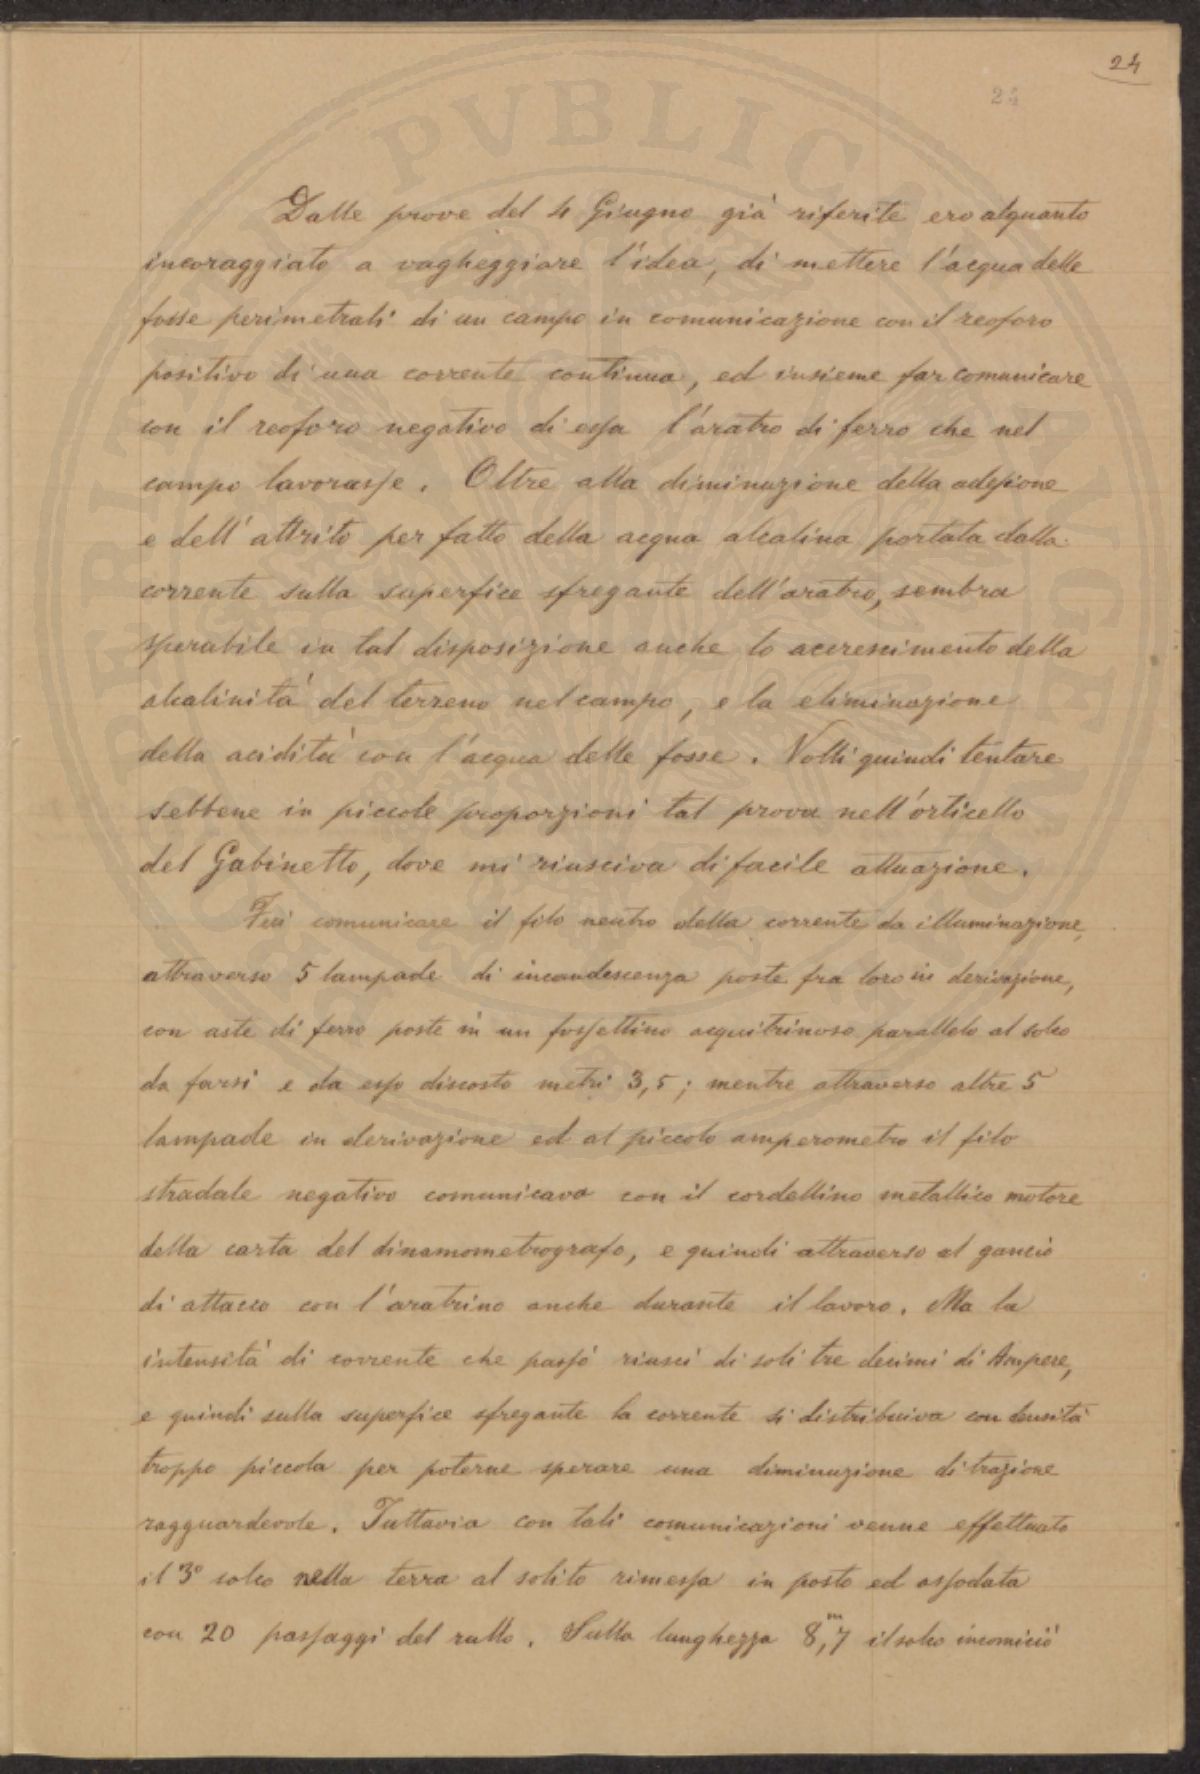 24
24
Dalle prove del 4 Giugno già riferite ero alquanto
incoraggiato a vagheggiare l'idea, di mettere l'acqua delle
fosse perimetrali di un campo in comunicazione con il reoforo
positivo di una corrente continua, ed insieme far comunicare
con il reoforo negativo di essa l'aratro di ferro che nel
campo lavorasse. Oltre alla diminuzione della adesione
e dell'attrito per fatto della acqua alcalina portata dalla
corrente sulla superfice sfregante dell'aratro, sembra
sperabile in tal disposizione anche lo accrescimento della
alcalinità del terreno nel campo, e la eliminazione
della acidità con l'acqua delle fosse. Volli quindi tentare
sebbene in piccole proporzioni tal prova nell'orticello
del Gabinetto, dove mi riusciva di facile attuazione.
Feci comunicare il filo neutro della corrente da illuminazione,
attraverso 5 lampade di incandescenza poste fra loro in derivazione,
con aste di ferro poste in un fossettino acquitrinoso parallelo al solco
da farsi e da esso discosto metri 3,5; mentre attraverso altre 5
lampade in derivazione ed al piccolo amperometro il filo
stradale negativo comunicava con il cordellino metallico motore
della carta del dinamometrografo, e quindi attraverso al gancio
di attacco con l'aratrino anche durante il lavoro. Ma la
intensità di corrente che passò riuscì di soli tre decimi di Ampere,
e quindi sulla superfice sfregante la corrente si distribuiva con densità
troppo piccola per poterne sperare una diminuzione di trazione
ragguardevole. Tuttavia con tali comunicazioni venne effettuato
il 3° solco nella terra al solito rimessa in posto ed assodata
con 20 passaggi del rullo. Sulla lunghezza 8,ᵐ7 il solco incominciò
PVBLICA